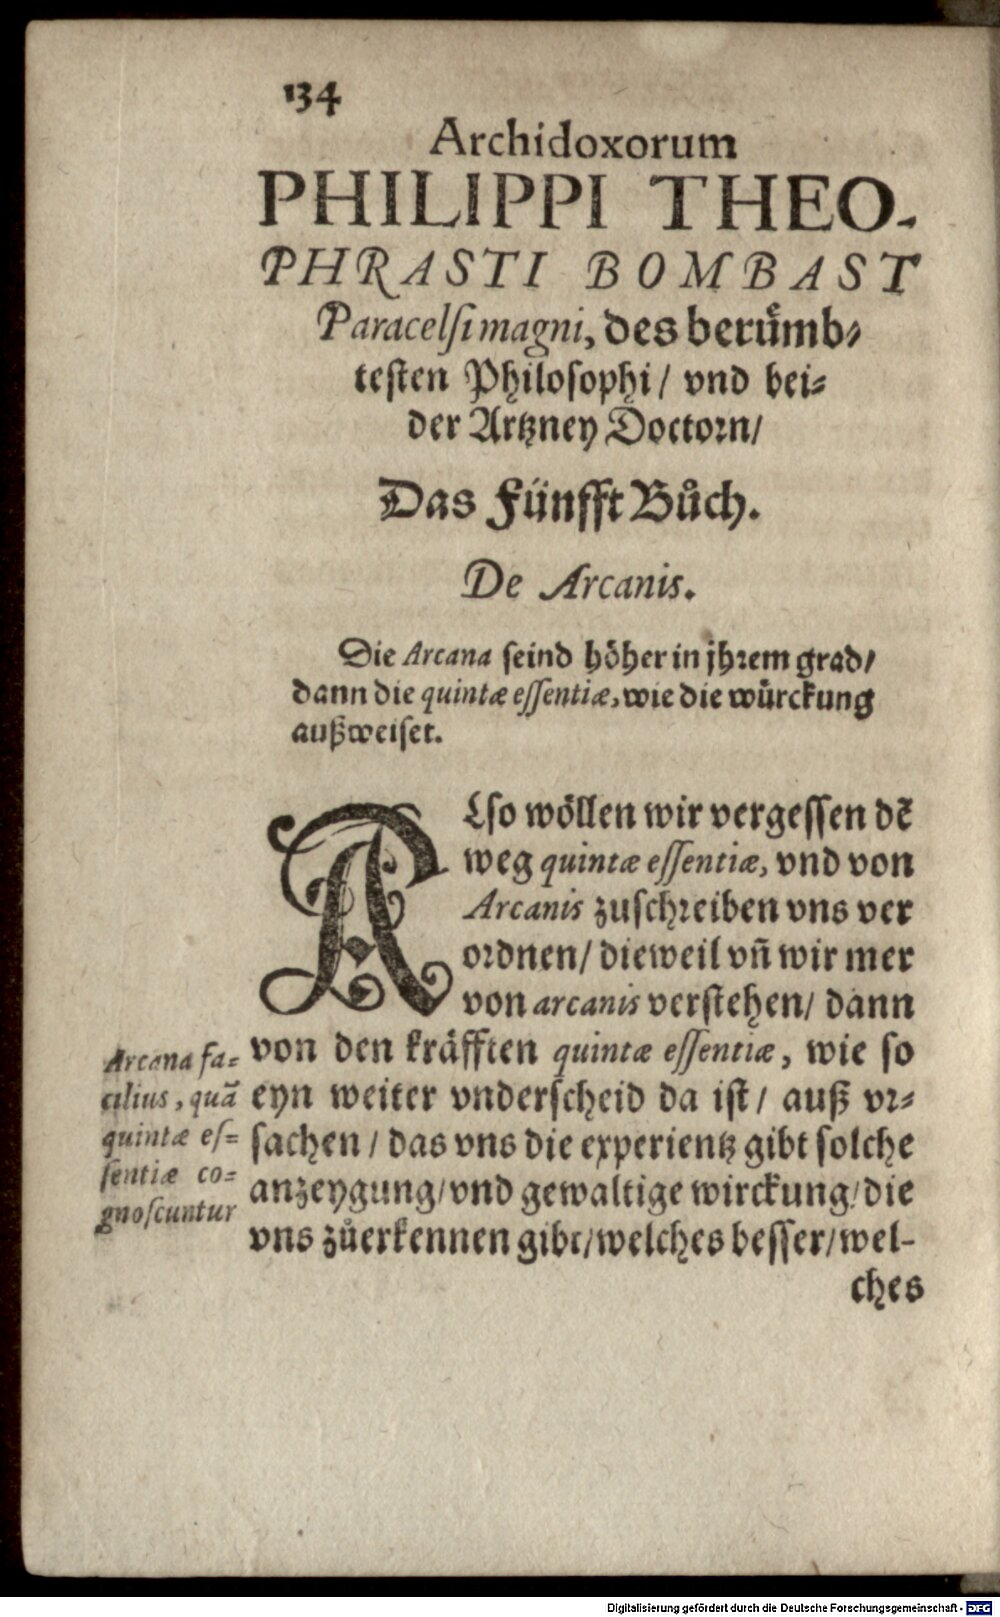 134
Archidoxorum
PHILIPPI THEO-
PHRASTI BOMBAST
Paracelsi magni, des berůmb-
testen Philosophi/ vnd bei-
der Artzney Doctorn/
Das Fünfft Bůch.
De Arcanis.
Die Arcana seind höher in jhrem grad/
dann die quintæ essentiæ, wie die würckung
außweiset.
ALso wöllen wir vergessen dē
weg quintæ essentiæ, vnd von
Arcanis zuschreiben vns ver
ordnen/ dieweil vñ wir mer
von arcanis verstehen/ dann
von den kräfften quintæ essentiæ, wie so
eyn weiter vnderscheid da ist/ auß vr-
sachen/ das vns die experientz gibt solche
anzeygung/ vnd gewaltige wirckung/ die
vns zůerkennen gibt/ welches besser/ wel-
ches
Arcana fa-
cilius, quã
quintæ es-
sentiæ co-
gnoscuntur
Digitalisierung gefördert durch die Deutsche Forschungsgemeinschaft - DFG